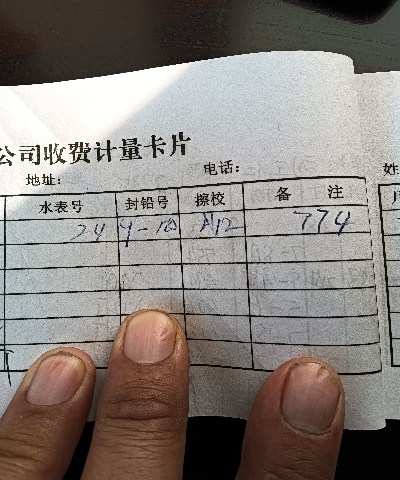 公司收费计量卡片
地址： 电话： 姓
水表号 封铅号 擦校 备 注
24 9-10 A12 774